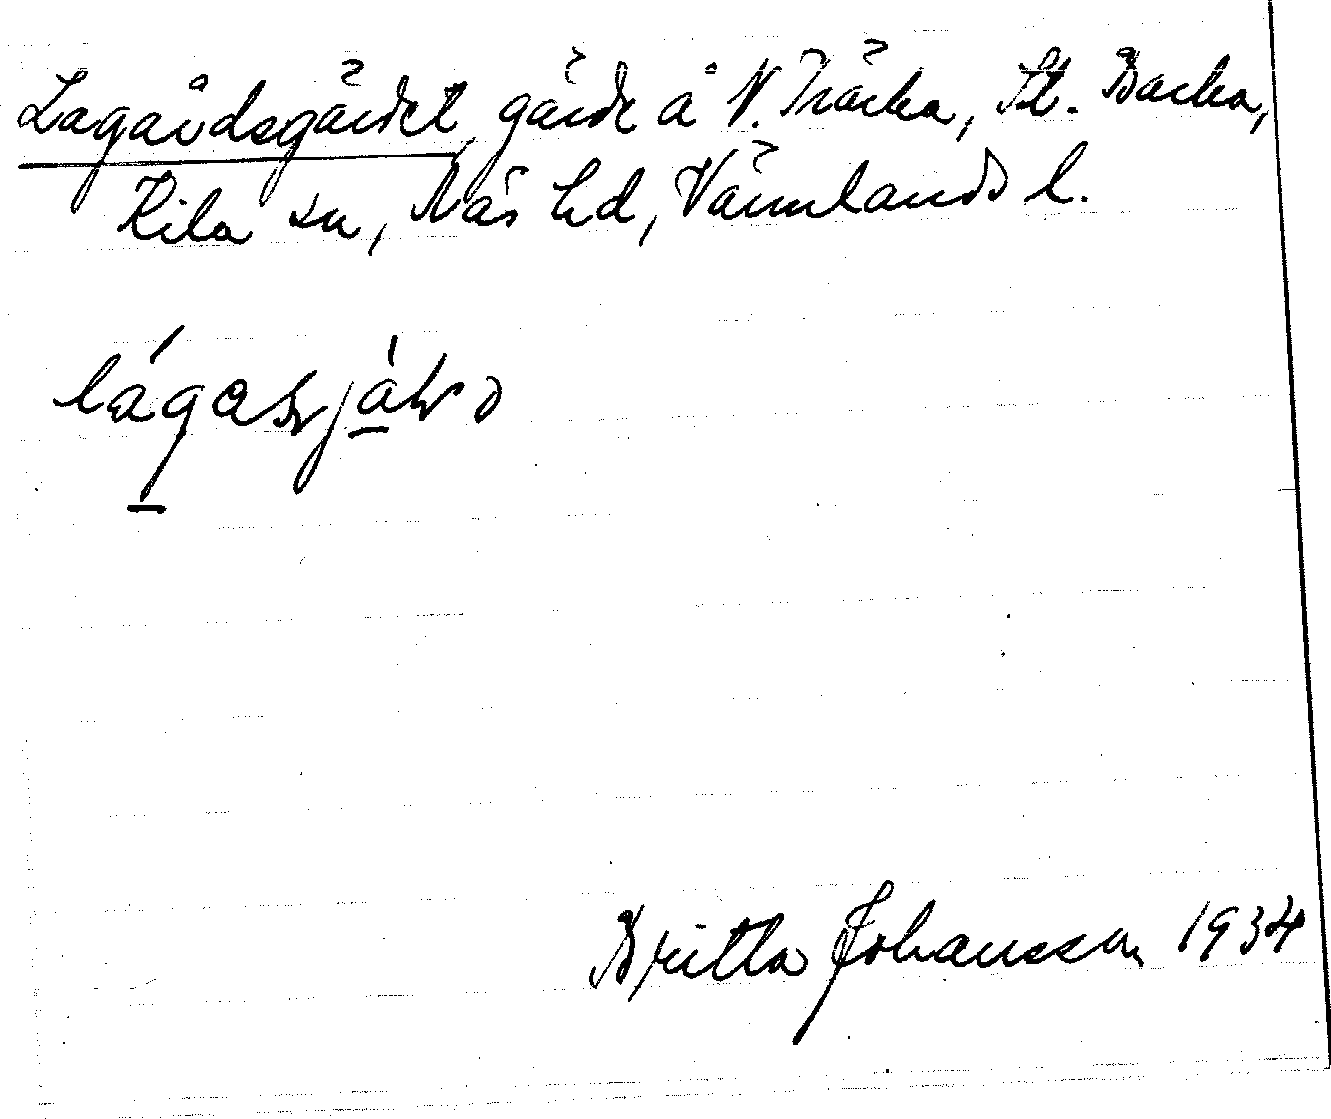 Lagårdsgärdet, gärde å N. Träcka, St. Backa,
Kila sn, Näs hd, Värmlands l.
Britta Johansson 1934